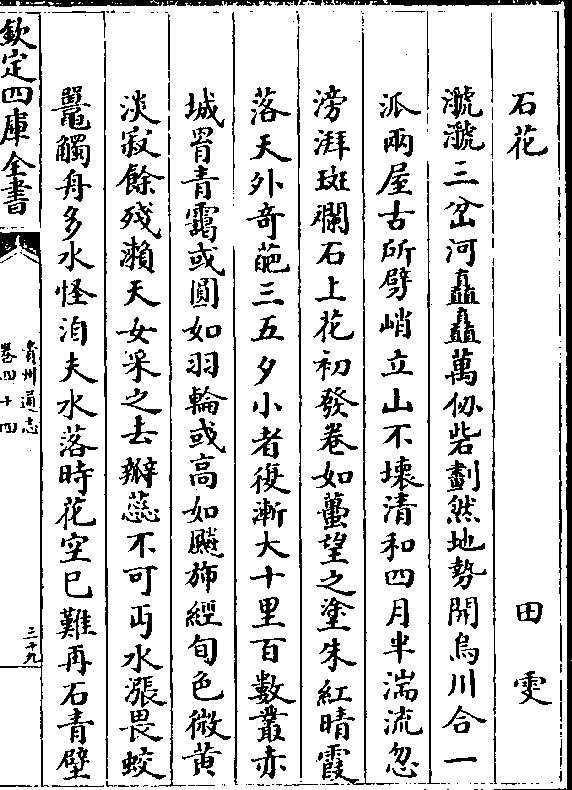 石花　田雯
㶁㶁三岔河矗矗萬仞砦劃然地勢開烏川合一
派兩屋古所劈峭立山不壞清和四月半湍流忽
滂湃斑斕石上花初發卷如蠆望之塗朱紅晴霞
落天外奇葩三五夕小者復漸大十里百數叢赤
城罥青靄或圓如羽輪或高如颭斾經旬色微黄
淡寂餘殘瀨天女采之去瓣蕊不可丐水漲畏蛟
鼉觸舟多水怪洎夫水落時花空已難再石青壁
欽定四庫全書
貴州通志
卷四十四
三十九